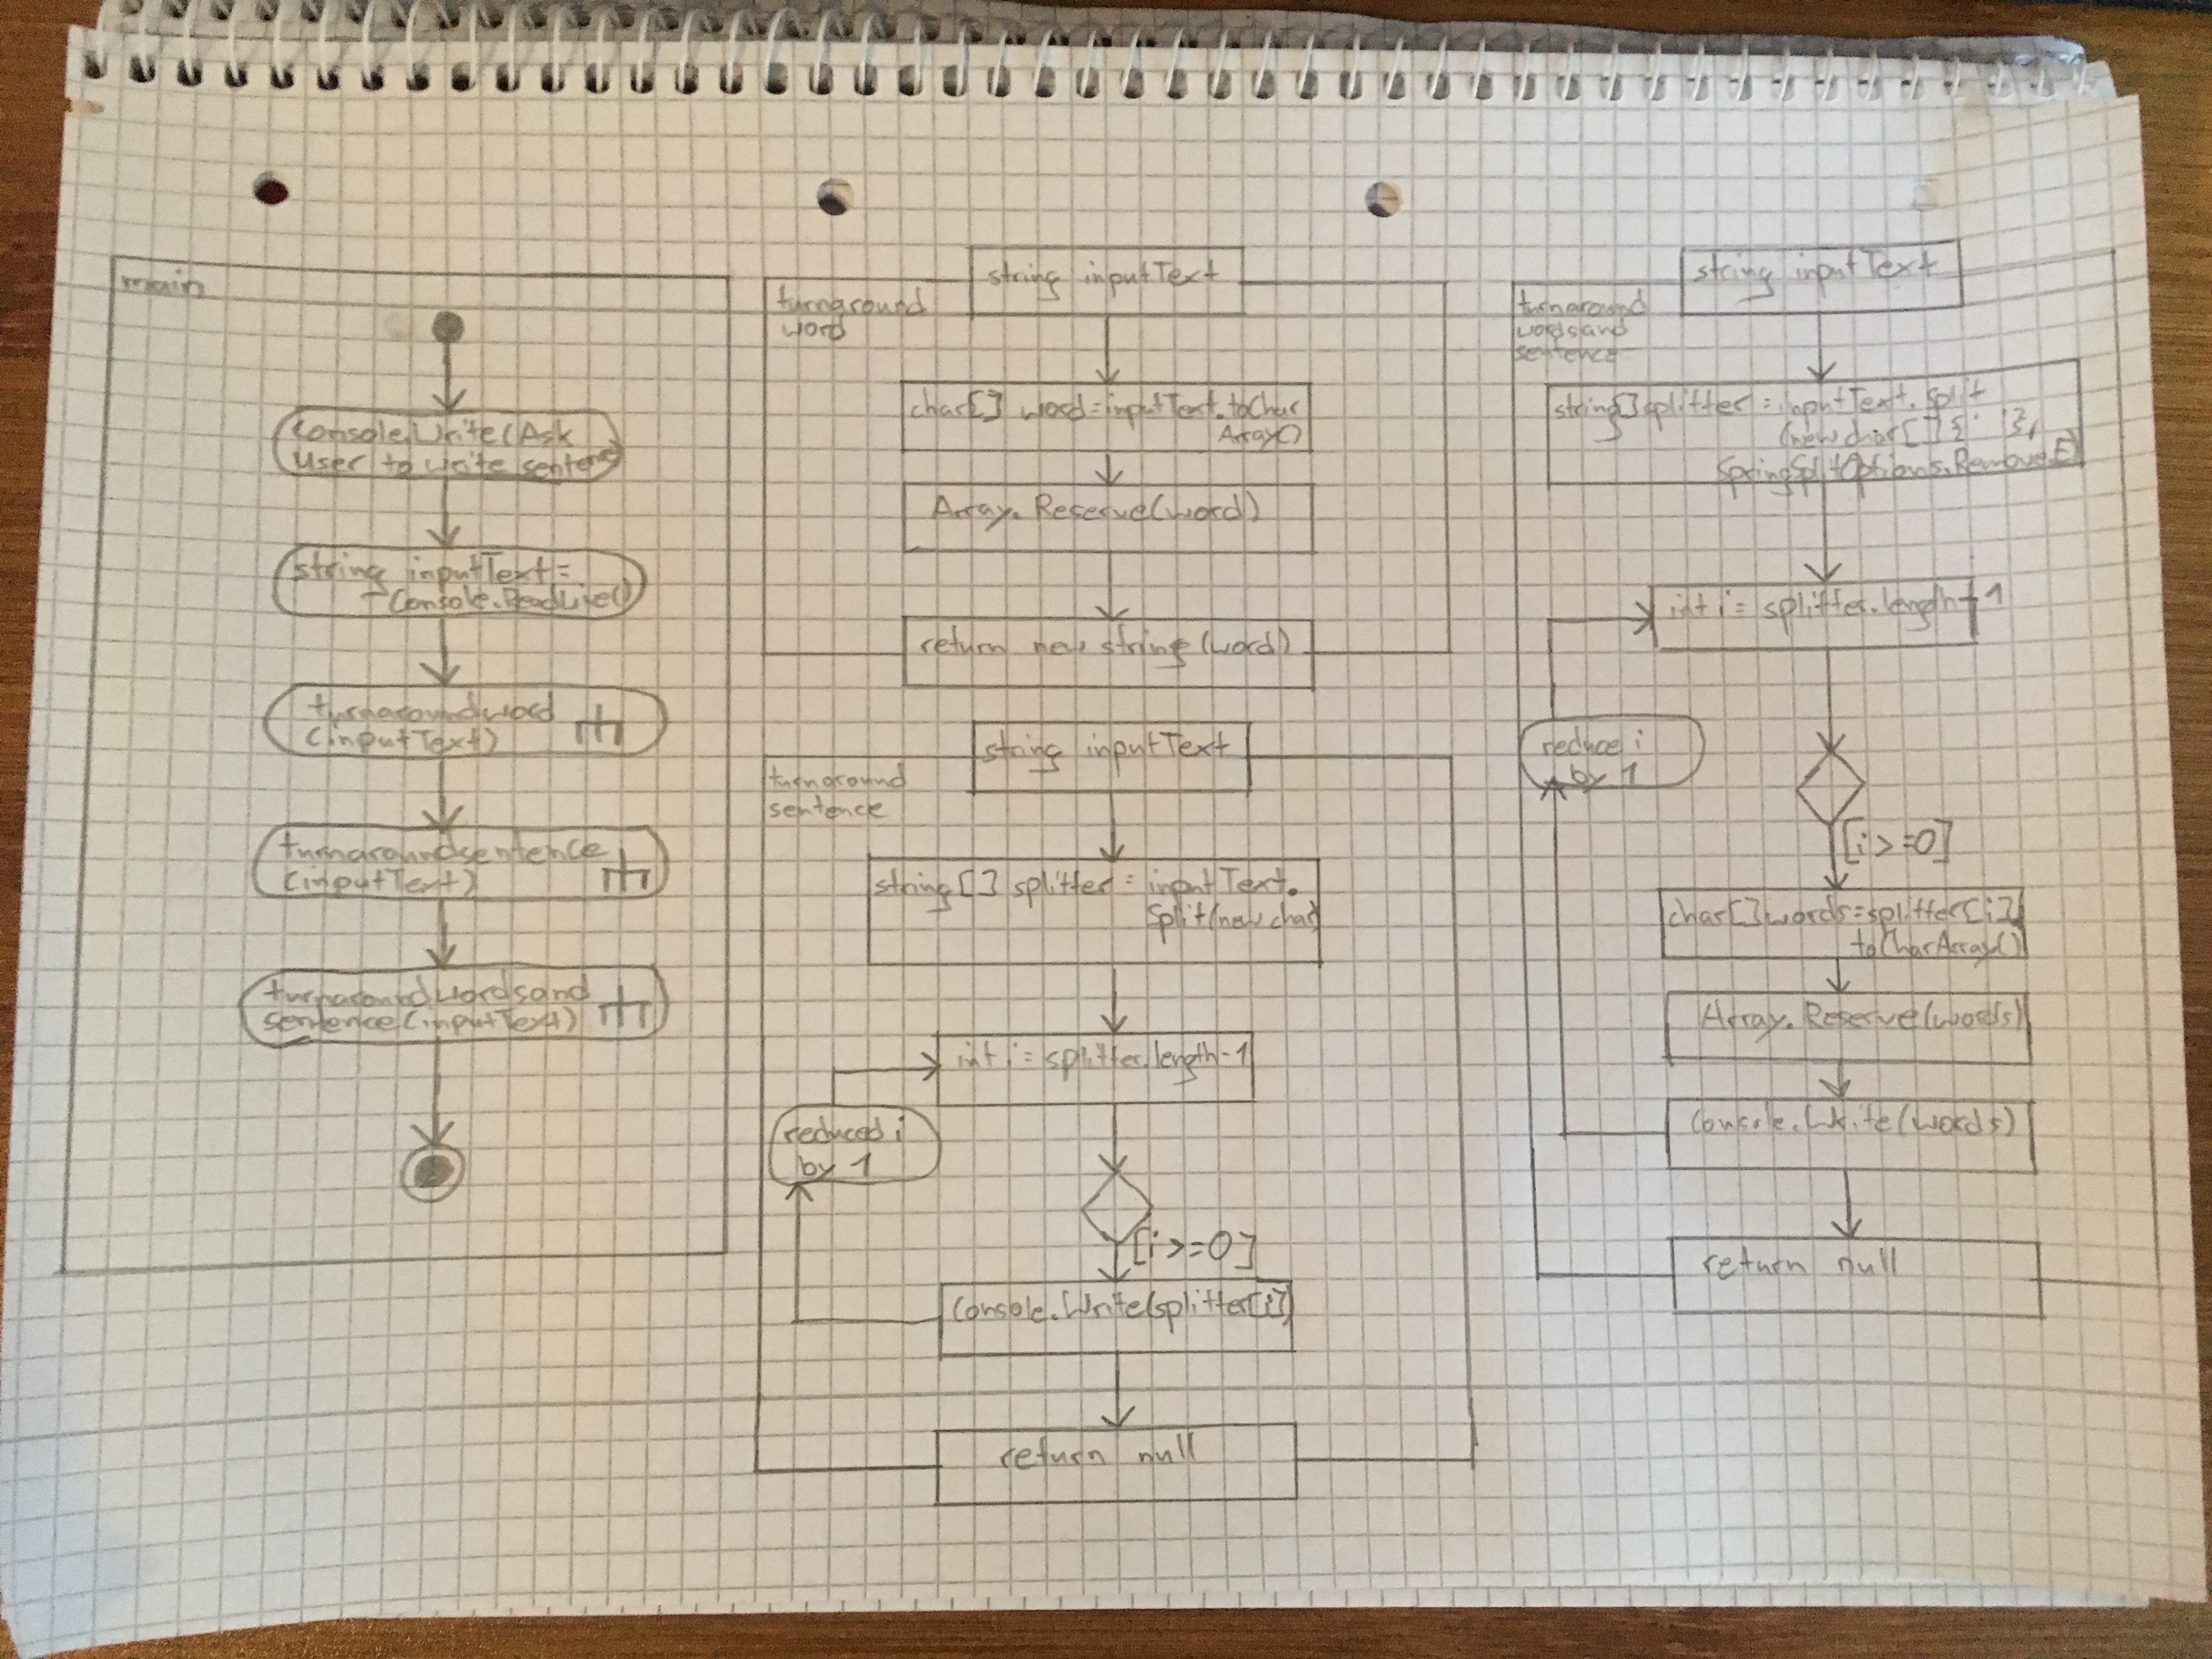 main
Console.Write(Ask
user to write sentence
string inputText =
Console.ReadLine()
turnaroundword
(inputText)
turnaroundsentence
(inputText)
turnaroundwordsand
sentence(inputText)
turnaround
word
string inputText
char[] word=inputText.toChar
Array()
Array.Reserve(word)
return new string(word)
turnaround
sentence
string inputText
string[] splitter = inputText.
Split(new char
int i = splitter.length-1
reduced i
by 1
[i>=0]
Console.Write(splitter[i])
return null
turnaround
wordsand
sentence
string inputText
string[] splitter = inputText.Split
(new char[] {' '},
SpringSplitOptions.RemoveE)
int i = splitter.length-1
reduce i
by 1
[i>=0]
char[] words=splitter[i].
toCharArray()
Array.Reserve(words)
Console.Write(words)
return null